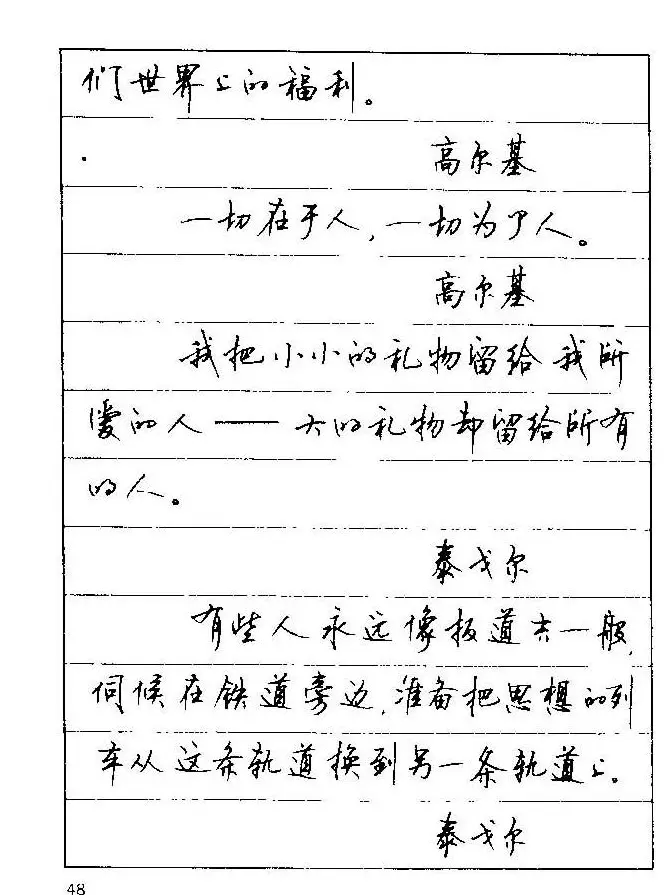 们世界上的福利。
高尔基
一切在于人，一切为了人。
高尔基
我把小小的礼物留给我所
爱的人——大的礼物却留给所有
的人。
泰戈尔
有些人永远像扳道夫一般，
伺候在铁道旁边，准备把思想的列
车从这条轨道换到另一条轨道上。
泰戈尔
48